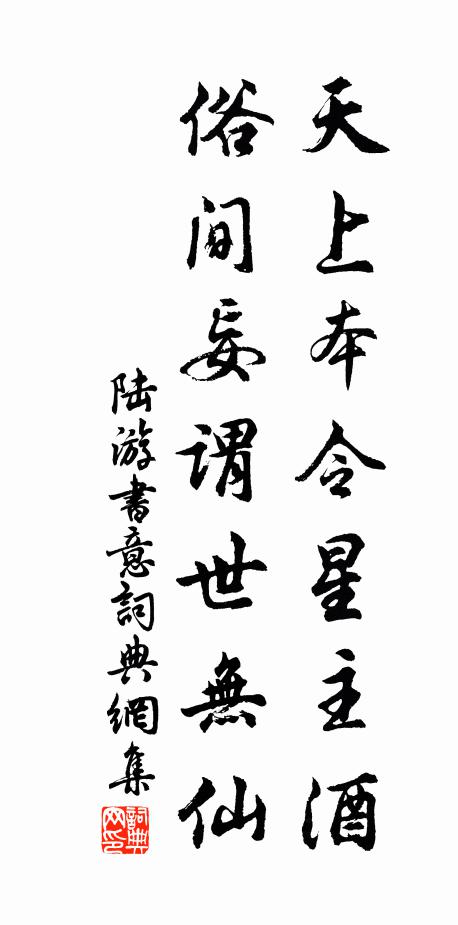 天上本令星主酒
俗间妄谓世無仙
陆游書意詞典網集
詞典网印